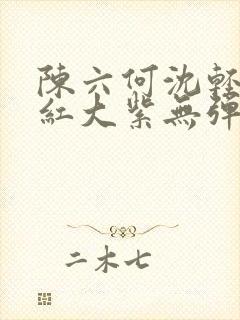 陳六何沈輕
紅大紫無彈
二木七